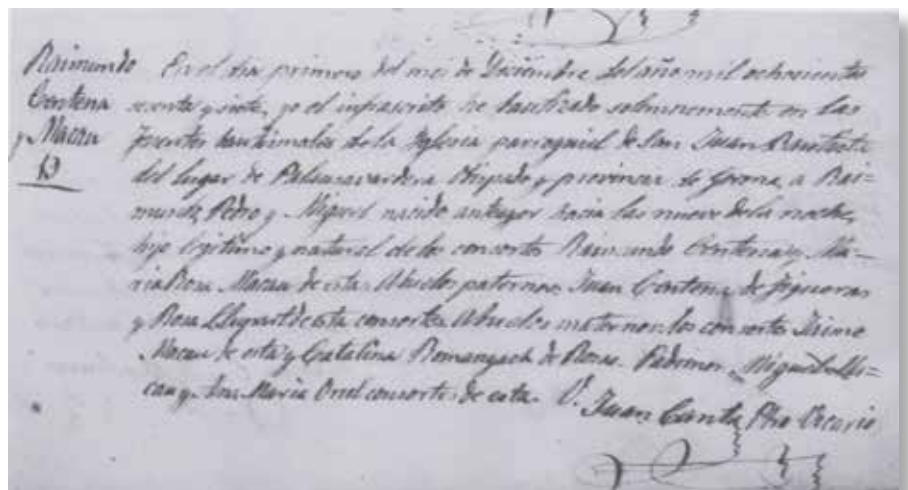 Raimundo
Centena
y Macau
13
En el dia primero del mes de Diciembre del año mil ochocientos
sesenta y siete, yo el infrascrito he bautizado solemnemente en las
fuentes bautismales de la Iglesia parroquial de San Juan Bautista
del lugar de Palausavardera Obispado y provincia de Gerona, a Rai=
mundo, Pedro y Miguel nacido antayer hacia las nueve de la noche,
hijo legitimo y natural de los consortes Raimundo Centena y Ma-
ria Rosa Macau de esta. Abuelos paternos Juan Centena de Figueras
y Rosa de esta consortes. Abuelos maternos los consortes Jaime
Macau de esta y Catalina Romanyach de Rosas. Padrinos Miguel Ma=
cau y Maria consortes de esta. Juan Pbro Vicario